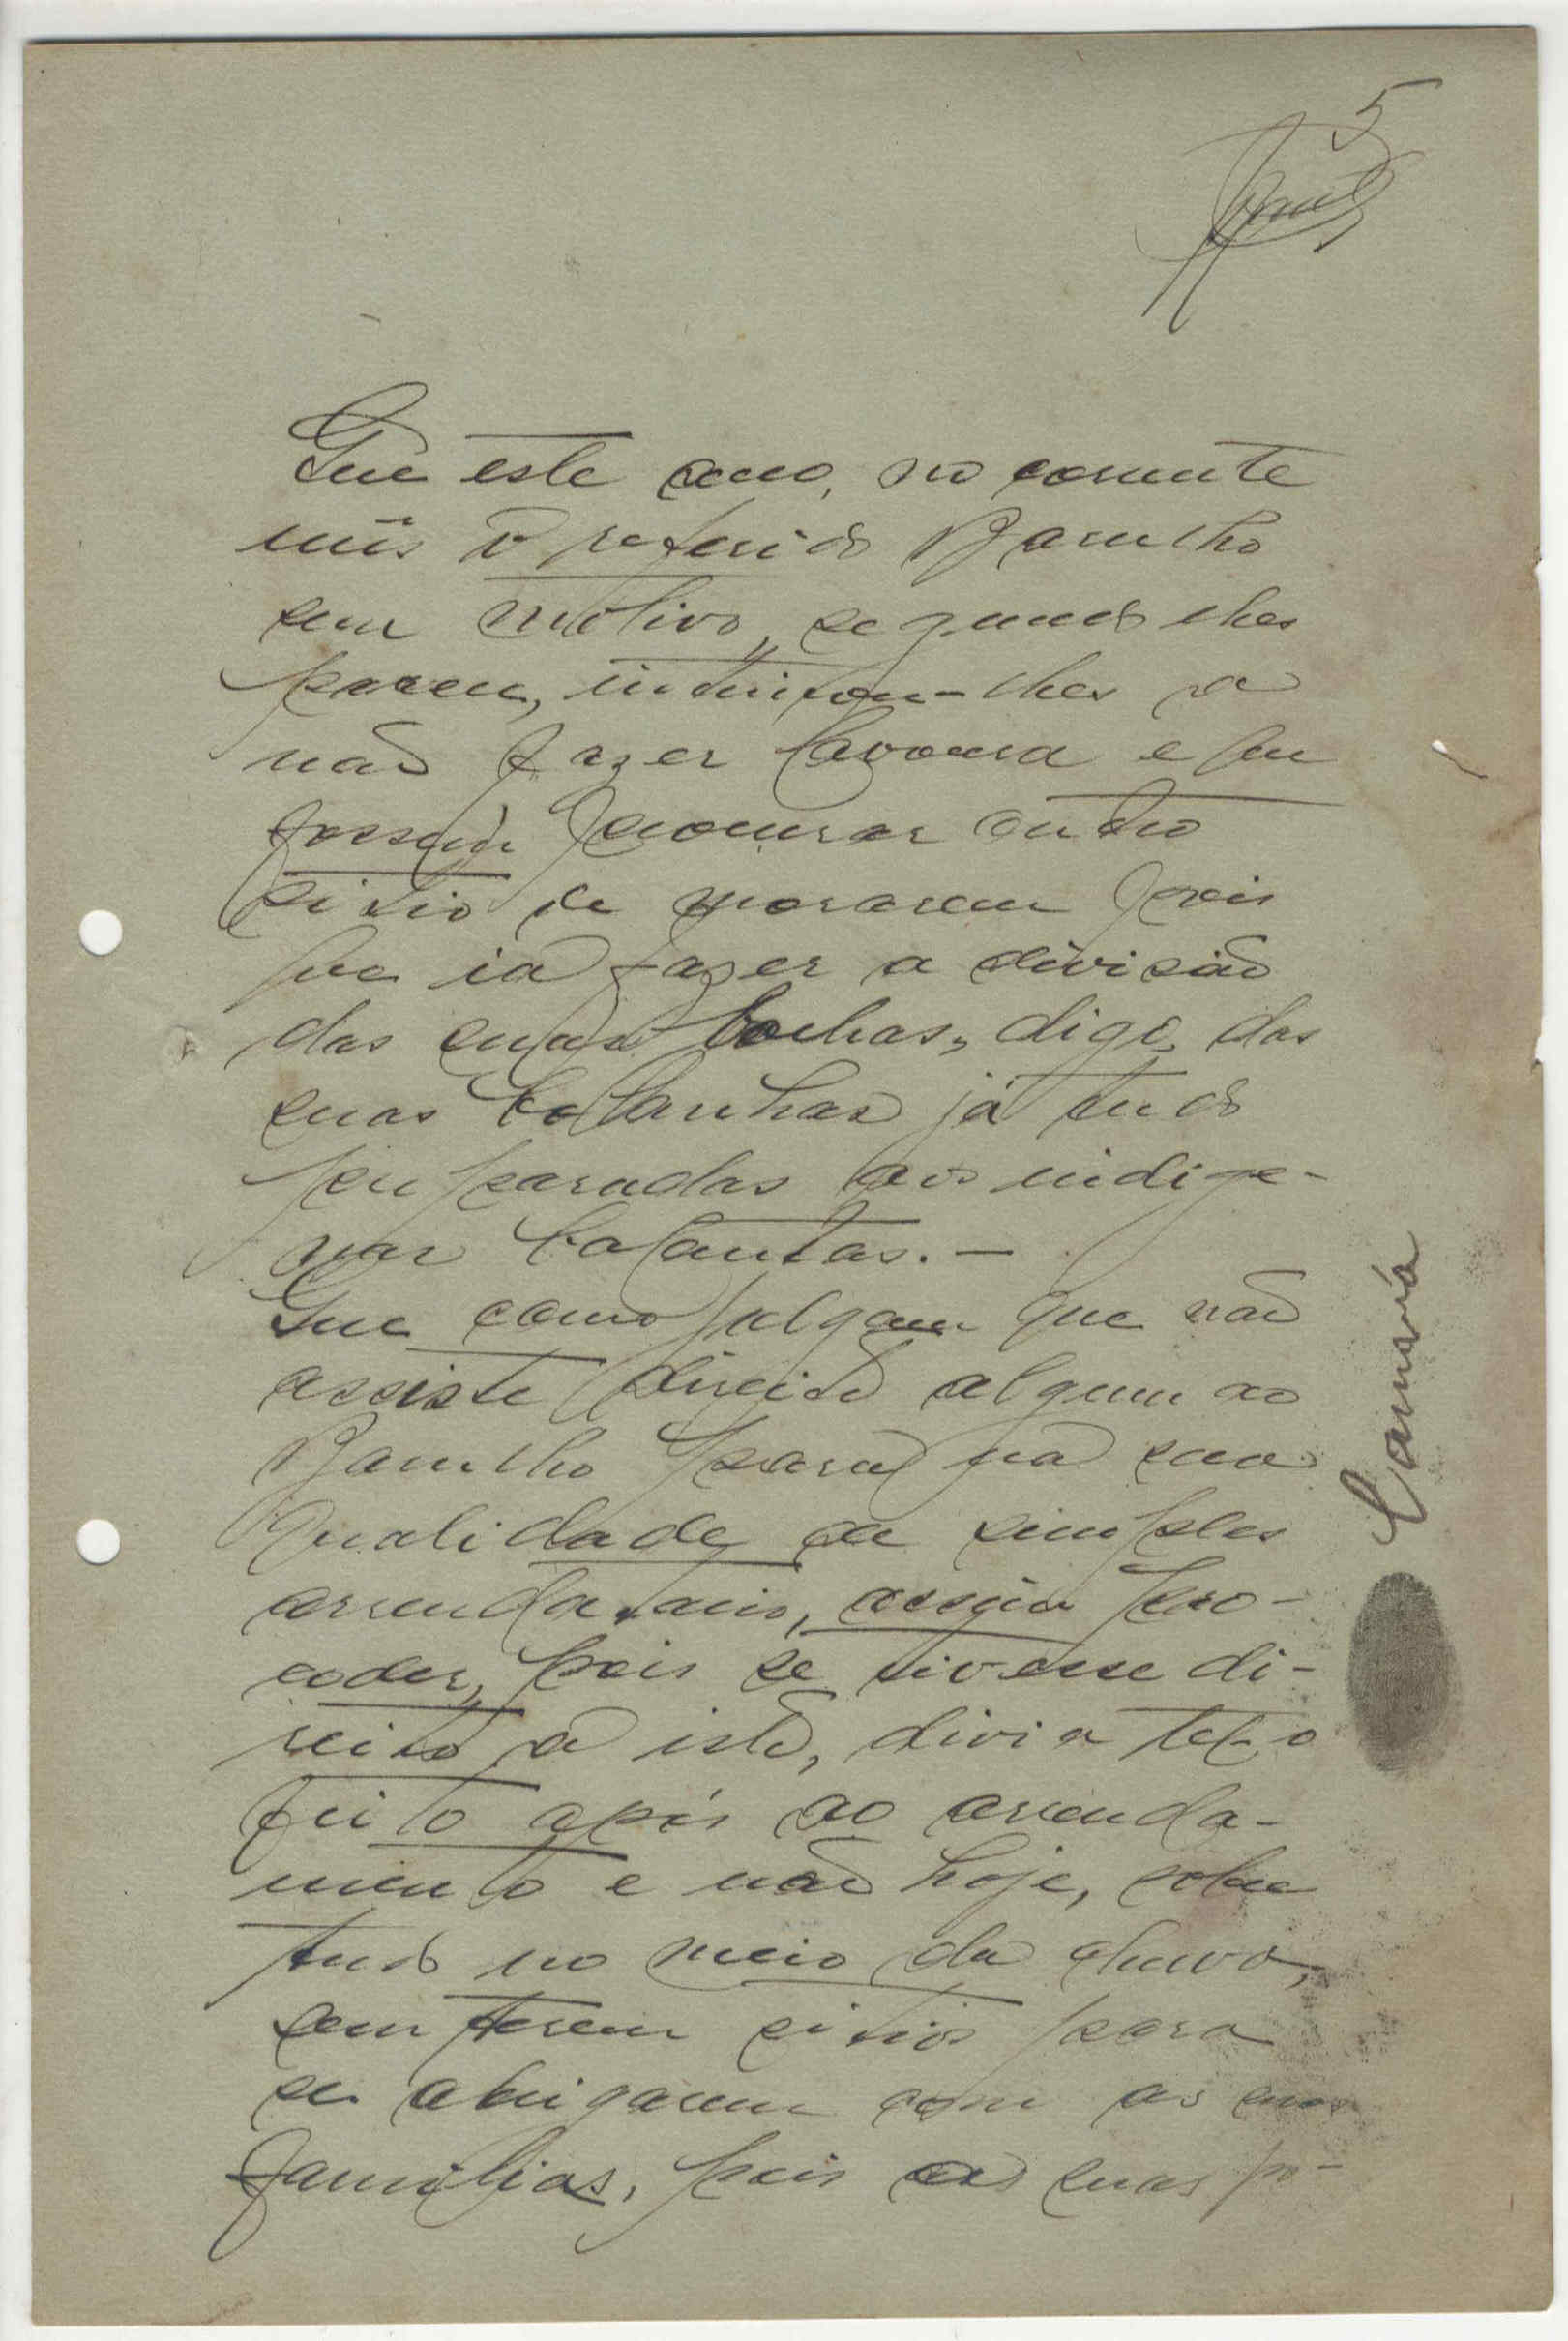 5
Que este anno, no corrente
mês o referido Barulho
sem motivo, segundo lhes
parece, intimou-lhes a
não fazer lavoura e que
fossem procurar outro
sitio de morarem pois
que ia fazer a divisão
das suas bolhas, digo, das
suas bolanhas já tudo
preparadas aos indige-
nas balantas. —
Que como julgam que não
assiste direito algum ao
Barulho para na sua
qualidade de simples
arrendatario, assim pro-
ceder, pois se tivesse di-
reito a isto, divia tel-o
feito após ao arrenda-
mento e não hoje, sobre
tudo no meio da chuva,
sem terem sitios para
se abrigarem com as suas
familias, pois as suas po-
Camará